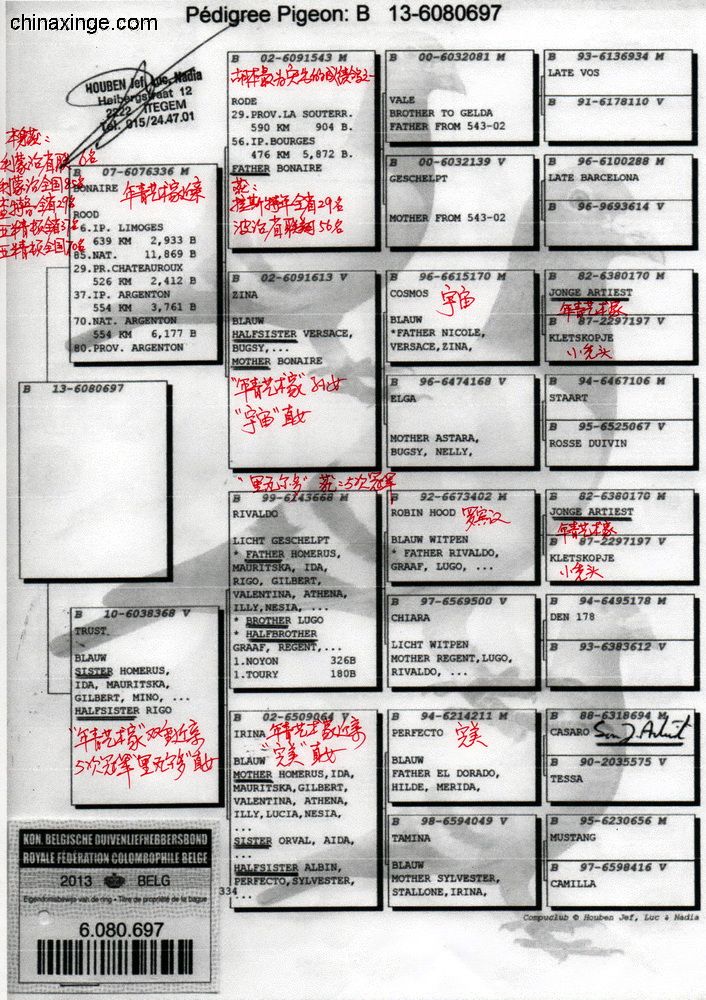 chinaxinge.com
Pédigree Pigeon: B 13-6080697
HOUBEN Jef, Luc, Nadia
Heibergstraat 12
2222 ITEGEM
Tel. 015/24.47.01
B 07-6076336 M
BONAIRE
年青艺术家近亲
ROOD
6.IP. LIMOGES
639 KM 2,933 B
85.NAT. 11,869 B
29.PR.CHATEAUROUX
526 KM 2,412 B
37.IP. ARGENTON
554 KM 3,761 B
70.NAT. ARGENTON
554 KM 6,177 B
80.PROV. ARGENTON
B 13-6080697
B 10-6038368 V
TRUST.
BLAUW
SISTER HOMERUS,
IDA, MAURITSKA,
GILBERT, MINO, ...
HALFSISTER RIGO
"年青艺术家"双重近亲
5次冠军"里瓦尔多"直女
B 02-6091543 M
RODE
29.PROV.LA SOUTERR.
590 KM 904 B.
56.IP.BOURGES
476 KM 5,872 B.
FATHER BONAIRE
B 02-6091613 V
ZINA
BLAUW
HALFSISTER VERSACE,
BUGSY,...
MOTHER BONAIRE
"宇宙"直女
B 99-6143668 M
RIVALDO
LICHT GESCHELPT
* FATHER HOMERUS,
MAURITSKA, IDA,
RIGO, GILBERT,
VALENTINA, ATHENA,
ILLY,NESIA, ...
* BROTHER LUGO
* HALFBROTHER
GRAAF, REGENT,...
1.NOYON 326B
1.TOURY 180B
B 02-6509064 V
IRINA
年青艺术家近亲
"完美"直女
BLAUW
MOTHER HOMERUS,IDA,
MAURITSKA,GILBERT,
VALENTINA, ATHENA,
ILLY,LUCIA,NESIA,
...
SISTER ORVAL, AIDA,
...
HALFSISTER ALBIN,
PERFECTO,SYLVESTER,
...
334
B 00-6032081 M
VALE
BROTHER TO GELDA
FATHER FROM 543-02
B 00-6032139 V
GESCHELPT
MOTHER FROM 543-02
B 96-6615170 M
COSMOS
宇宙
BLAUW
*FATHER NICOLE,
VERSACE,ZINA,
B 96-6474168 V
ELGA
MOTHER ASTARA,
BUGSY, NELLY,
B 92-6673402 M
ROBIN HOOD
罗宾汉
BLAUW WITPEN
* FATHER RIVALDO,
GRAAF, LUGO, ...
B 97-6569500 V
CHIARA
LICHT WITPEN
MOTHER REGENT,LUGO,
RIVALDO, ...
B 94-6214211 M
PERFECTO
完美
BLAUW
FATHER EL DORADO,
HILDE, MERIDA,
B 98-6594049 V
TAMINA
BLAUW
MOTHER SYLVESTER,
STALLONE,IRINA,
B 93-6136934 M
LATE VOS
B 91-6178110 V
B 96-6100288 M
LATE BARCELONA
B 96-9693614 V
B 82-6380170 M
JONGE ARTIEST
年青艺术家
B 87-2297197 V
KLETSKOPJE
小秃头
B 94-6467106 M
STAART
B 95-6525067 V
ROSSE DUIVIN
B 82-6380170 M
JONGE ARTIEST
年青艺术家
B 87-2297197 V
KLETSKOPJE
小秃头
B 94-6495178 M
DEN 178
B 93-6383612 V
B 88-6318694 M
CASARO
B 90-2035575 V
TESSA
B 95-6230656 M
MUSTANG
B 97-6598416 V
CAMILLA
Compuclub © Houben Jef, Luc & Nadia
KON. BELGISCHE DUIVENLIEFHEBBERSBOND
ROYALE FÉDÉRATION COLOMBOPHILE BELGE
2013 BELG
Eigendomsbewijs van de ring - Titre de propriété de la bague
6.080.697